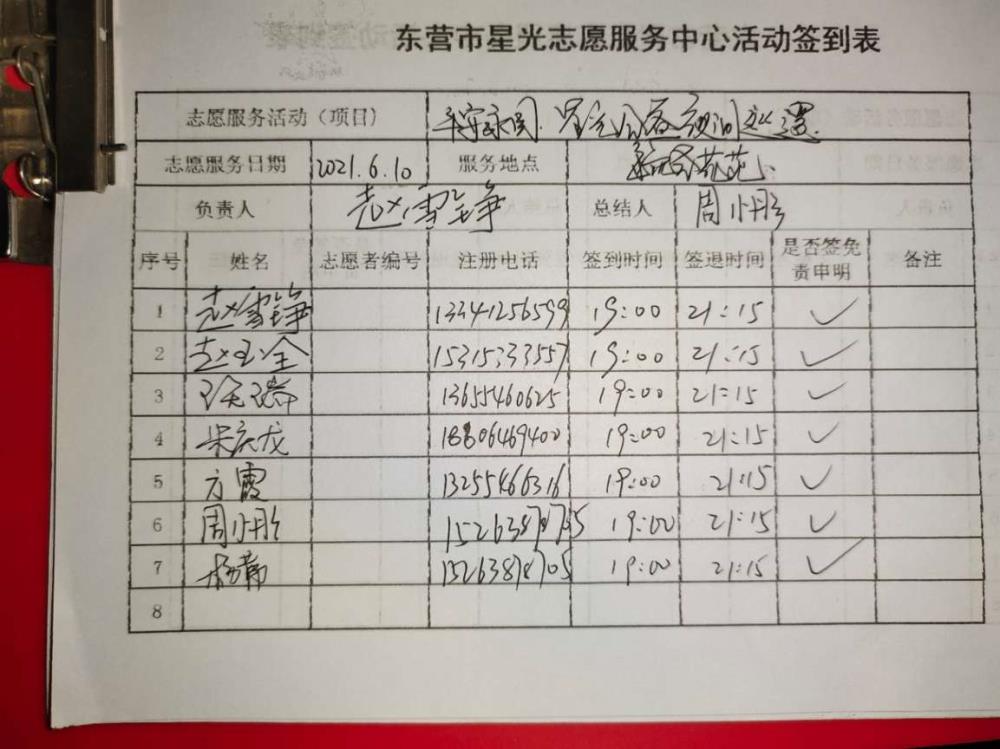 东营市星光志愿服务中心活动签到表
志愿服务活动（项目） 平安家园.
志愿服务日期 2021.6.10 服务地点
负责人 赵雪铮 总结人 周小彤
序号 姓名 志愿者编号 注册电话 签到时间 签退时间 是否签免责申明 备注
1 赵雪铮 13341256599 19:00 21:15 ✓
2 赵玉全 15315333557 19:00 21:15 ✓
3 13655460625 19:00 21:15 ✓
4 宋庆龙 18806469400 19:00 21:15 ✓
5 方霞 13255466316 19:00 21:15 ✓
6 周小彤 19:00 21:15 ✓
7 19:00 21:15 ✓
8